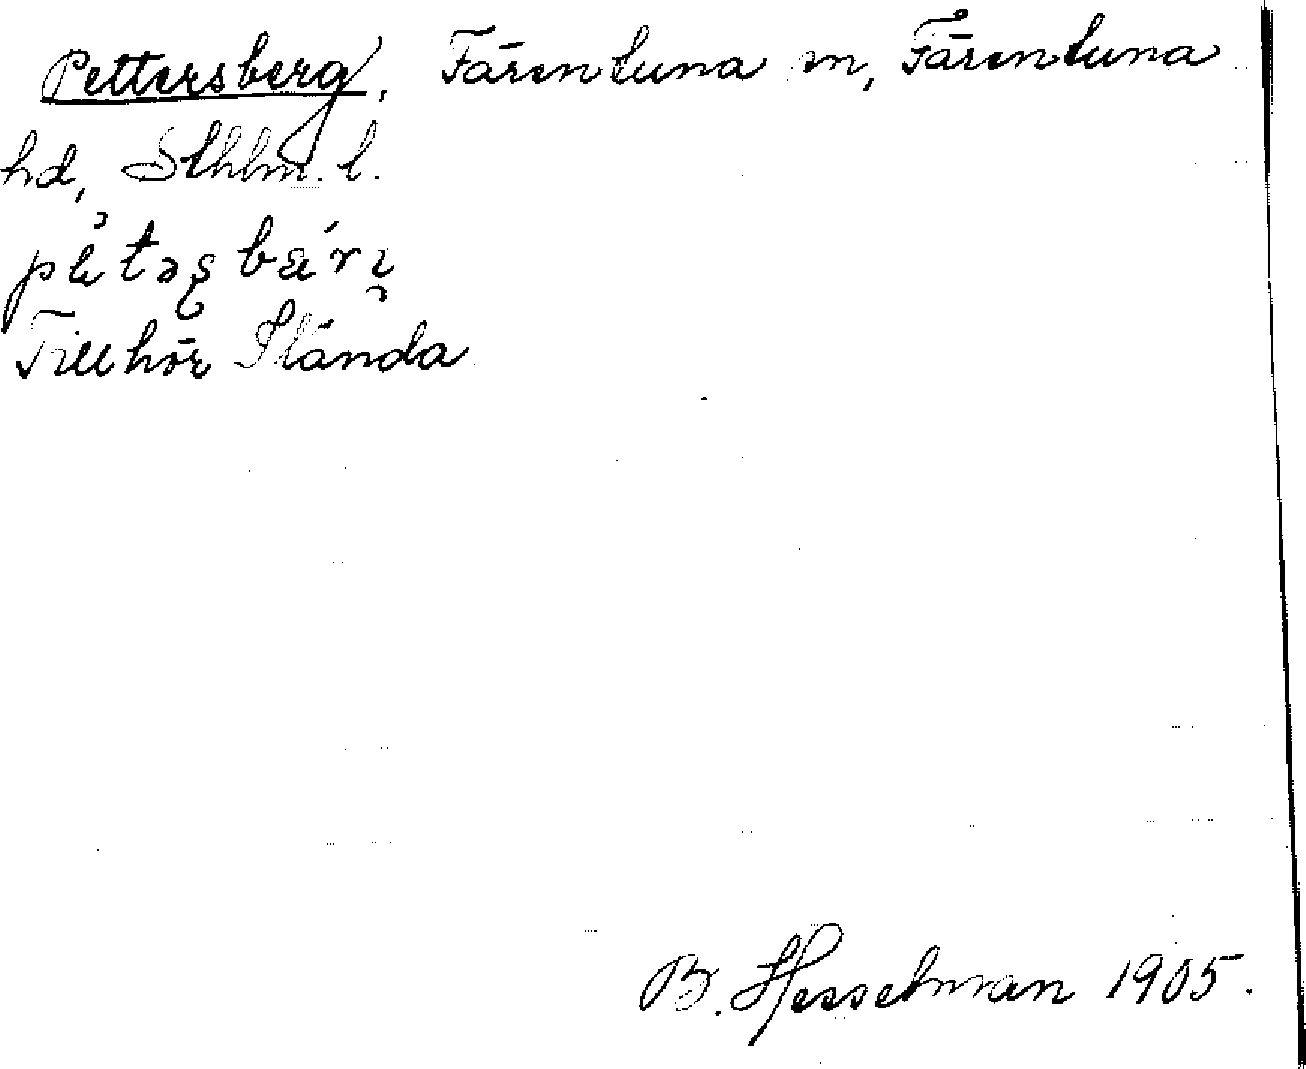 Pettersberg, Färentuna sn, Färentuna
hd, Sthlm. l.
Tillhör Stånda
B. Hesselman 1905.